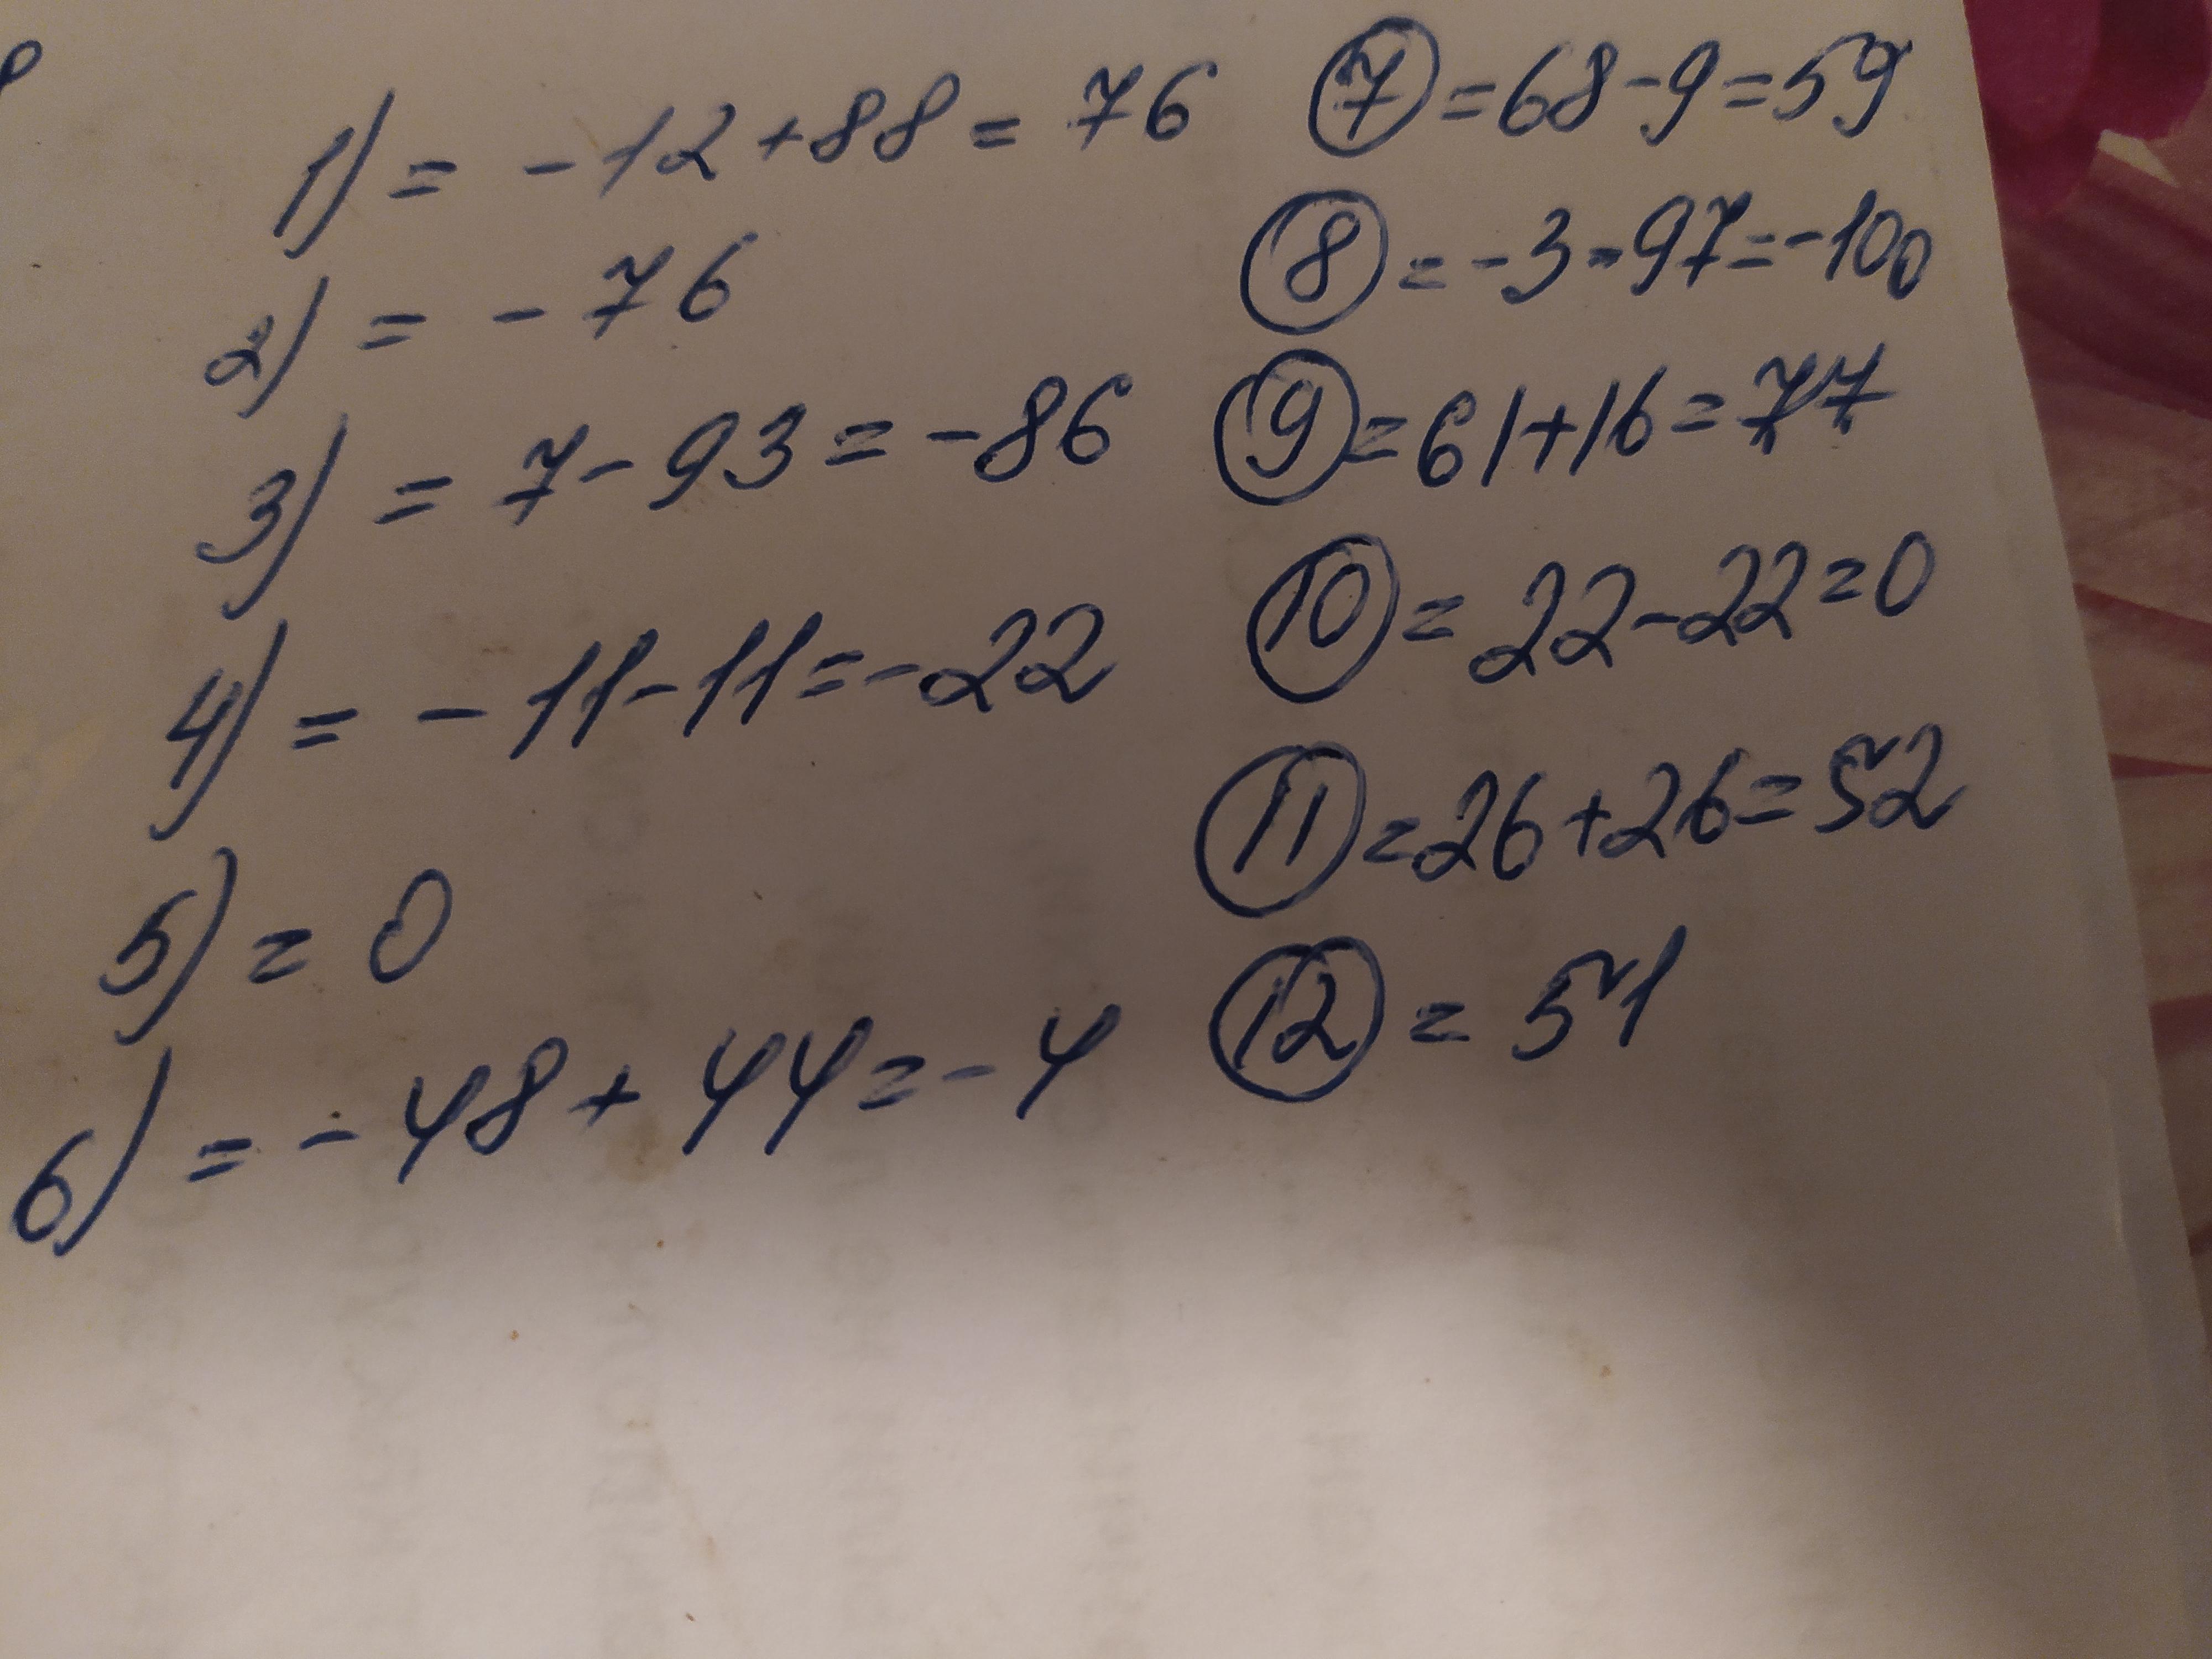 1) = -12+88 = 76
2) = -76
3) = 7-93 = -86
4) = -11-11=-22
5) = 0
6) = -48+44=-4
7 =68-9=59
8 = -3-97=-100
9 =61+16=77
10 = 22-22=0
11 =26+26=52
12 = 51